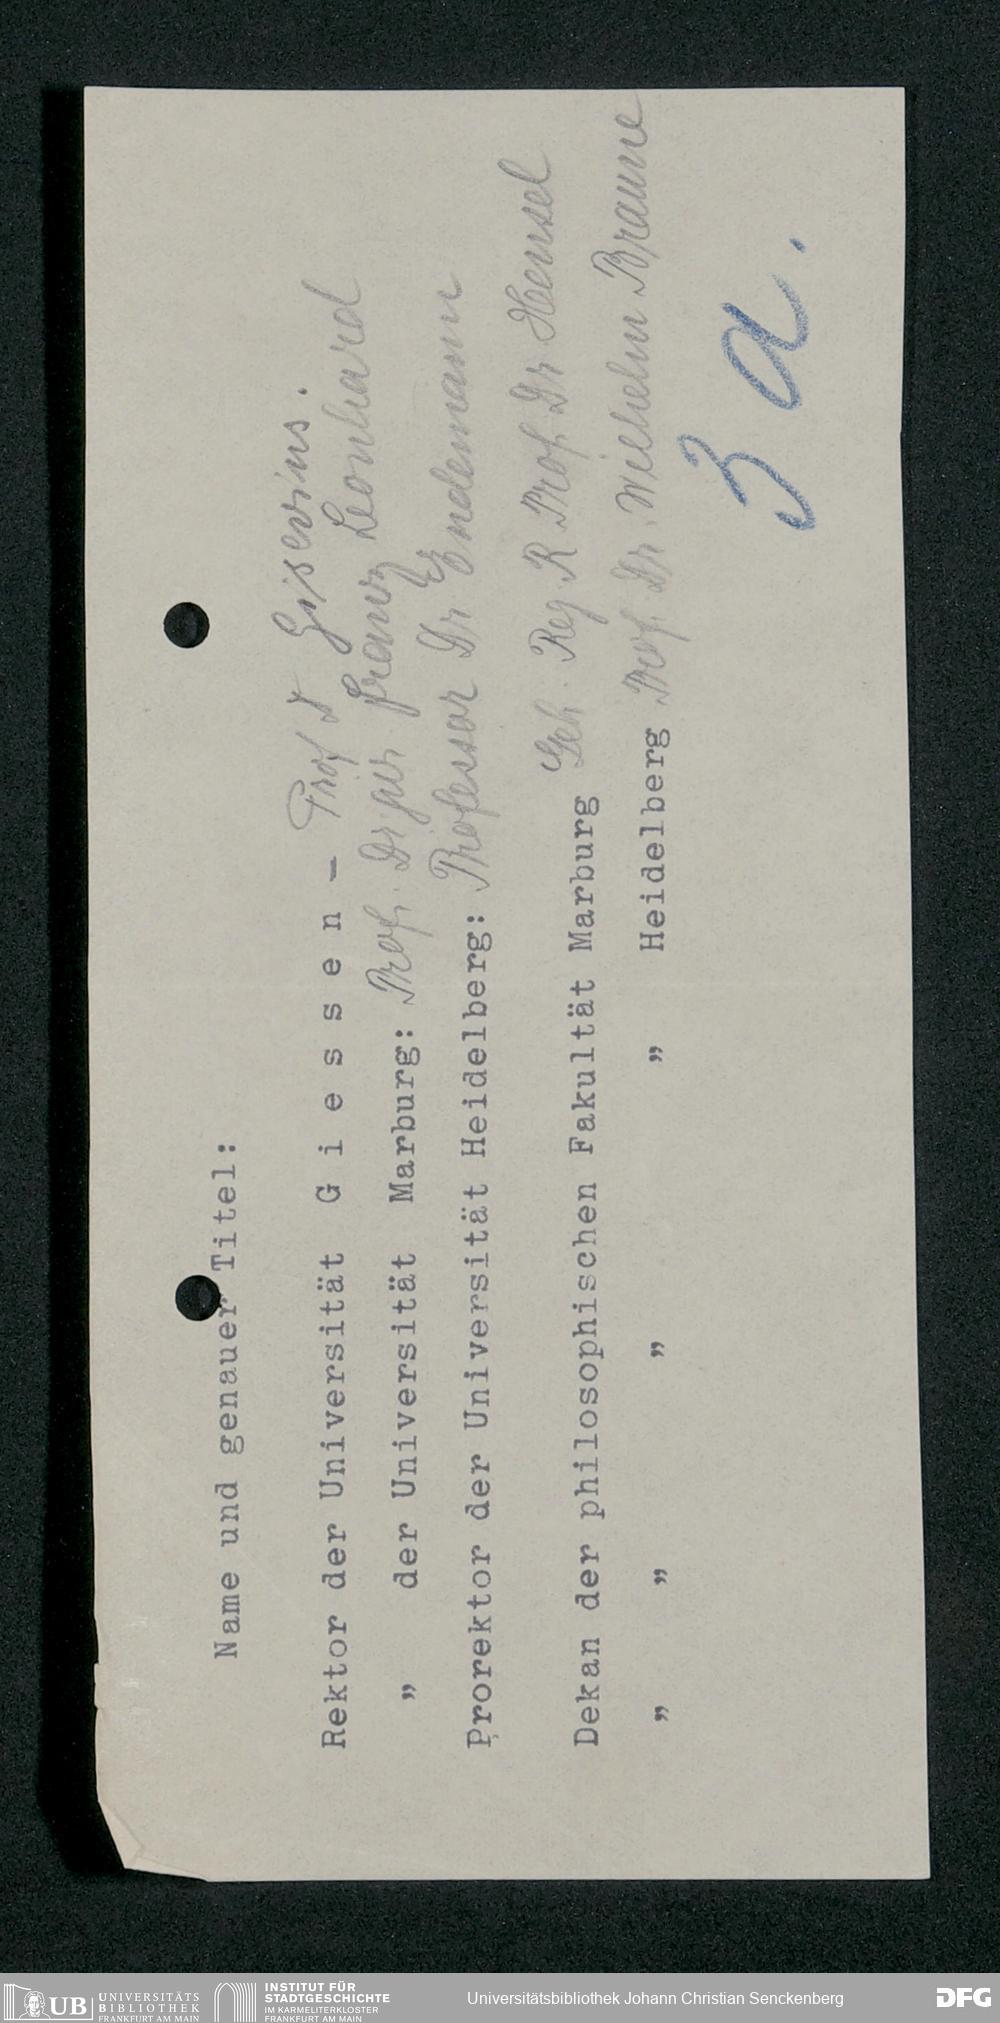 Name und genauer Titel:
Rektor der Universität G i e s s e n – Prof
" der Universität Marburg: Prof. Dr jur. Franz Leonhard
Prorektor der Universität Heidelberg: Professor Dr Endemann
Dekan der philosophischen Fakultät Marburg Geh. Reg. R Prof. Dr Hensel
" " " " Heidelberg Prof. Dr. Wilhelm Braune
3 a.
UB UNIVERSITÄTS
BIBLIOTHEK
FRANKFURT AM MAIN
INSTITUT FÜR
STADTGESCHICHTE
IM KARMELITERKLOSTER
FRANKFURT AM MAIN
Universitätsbibliothek Johann Christian Senckenberg
DFG